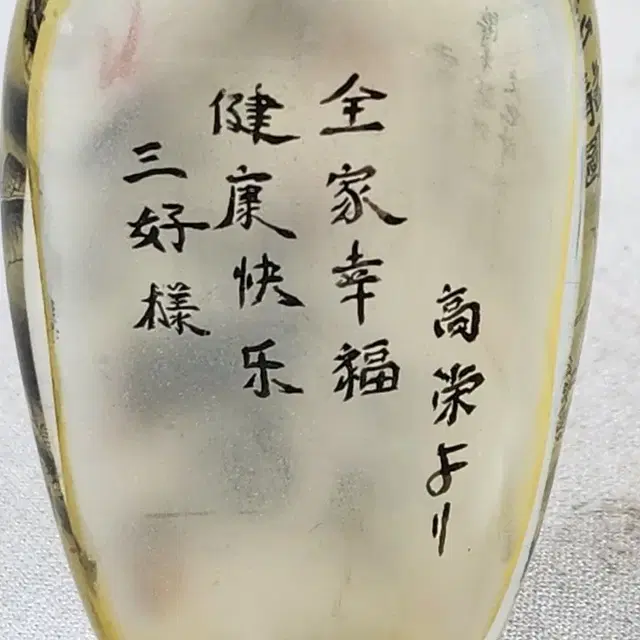 高栄より
全家幸福
健康快乐
三好様